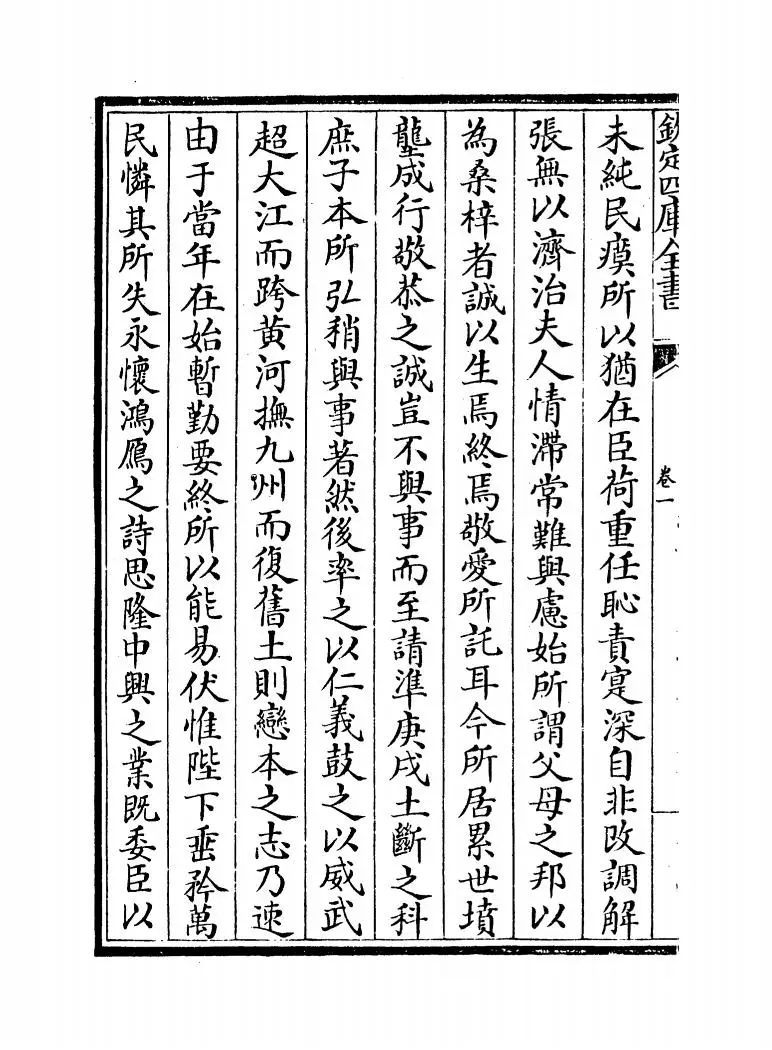 欽定四庫全書
卷一
未純民瘼所以猶在臣荷重任恥責寔深自非改調解
張無以濟治夫人情滯常難與慮始所謂父母之邦以
為桑梓者誠以生焉終焉敬愛所託耳今所居累世墳
壟成行敬恭之誠豈不與事而至請準庚戌土斷之科
庶子本所弘稍與事著然後率之以仁義鼓之以威武
超大江而跨黄河撫九州而復舊土則戀本之志乃速
由于當年在始暫勤要終所以能易伏惟陛下垂矜萬
民憐其所失永懷鴻鴈之詩思隆中興之業既委臣以